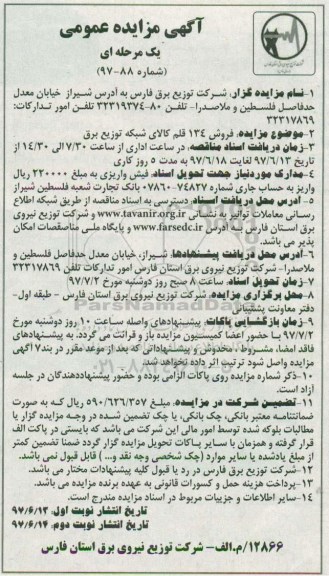 آگهی مزایده عمومی
یک مرحله ای
(شماره ۸۸-۹۷)
۱-نام مزایده گزار: شرکت توزیع برق فارس به آدرس شیراز خیابان معدل
حدفاصل فلسطین و ملاصدرا- تلفن ۸۰-۳۲۳۱۹۳۷۴ تلفن امور تدارکات:
۳۲۳۱۷۸۶۹
۲-موضوع مزایده: فروش ۱۳۴ قلم کالای شبکه توزیع برق
۳-زمان دریافت اسناد مناقصه: در ساعت اداری از ساعت ۷/۳۰ الی ۱۴/۳۰ از
تاریخ ۹۷/۶/۱۳ لغایت ۹۷/۶/۱۸ به مدت ۵ روز کاری
۴-مدارک موردنیاز جهت تحویل اسناد: فیش واریزی به مبلغ ۲۲۰۰۰۰ ریال
واریز به حساب جاری شماره ۰۷۸۶۰۷۴۸۲۷ بانک تجارت شعبه فلسطین شیراز
۵-ادرس محل دریافت اسناد: دسترسی به اسناد مناقصه از طریق شبکه اطلاع
رسانی معاملات توانیر به نشانی www.tavanir.org.ir و شرکت توزیع نیروی
برق استان فارس به آدرس www.farsedc.ir و پایگاه ملی مناقصات امکان
پذیر می باشد.
۶-ادرس محل دریافت پیشنهادها: شیراز، خیابان معدل حدفاصل فلسطین و
ملاصدرا- شرکت توزیع نیروی برق استان فارس امور تدارکات تلفن ۳۲۳۱۷۸۶۹
۷-زمان تحویل اسناد: ساعت ۸ صبح روز دوشنبه مورخ ۹۷/۷/۲
۸-محل برگزاری مزایده: شرکت توزیع نیروی برق استان فارس - طبقه اول-
دفتر معاونت پشتیبانی
۹-زمان بازگشایی پاکات: پیشنهادهای واصله ساعت ۱۰ روز دوشنبه مورخ
۹۷/۷/۲ با حضور اعضا کمیسیون مزایده باز و قرائت می گردد. به پیشنهادهای
فاقد امضا، مشروط، مخدوش و پیشنهاداتی که بعد از موعد مقرر در بند ۷ آگهی
مزایده واصل شود ترتیب اثر داده نخواهد شد.
۱۰-ذکر شماره مزایده روی پاکات الزامی بوده و حضور پیشنهاددهندگان در جلسه
آزاد است.
۱۱-تضمین شرکت در مزایده: مبلغ ۵۹۰/۶۲۶/۳۵۷ ریال که به صورت
ضمانتنامه معتبر بانکی، چک بانکی، یا چک تضمین شده در وجه مزایده گزار یا
مطالبات بلوکه شده توسط امور مالی این شرکت می باشد که بایستی در پاکت الف
قرار گرفته و همزمان با سایر پاکات تحویل مزایده گزار گردد ضمنا تضمین کمتر
از مبلغ یادشده یا سایر موارد (چک شخصی وجه نقد و... ) قابل قبول نمی باشد.
۱۲-شرکت توزیع برق فارس در رد یا قبول کلیه پیشنهادات مختار می باشد.
۱۳-پرداخت هزینه حمل و کسورات قانونی به عهده برنده مزایده می باشد.
۱۴-سایر اطلاعات و جزییات مربوط در اسناد مزایده مندرج است.
تاریخ انتشار نوبت اول: ۹۷/۶/۱۳
تاریخ انتشار نوبت دوم: ۹۷/۶/۱۴
۱۲۸۶۶/م.الف- شرکت توزیع نیروی برق استان فارس